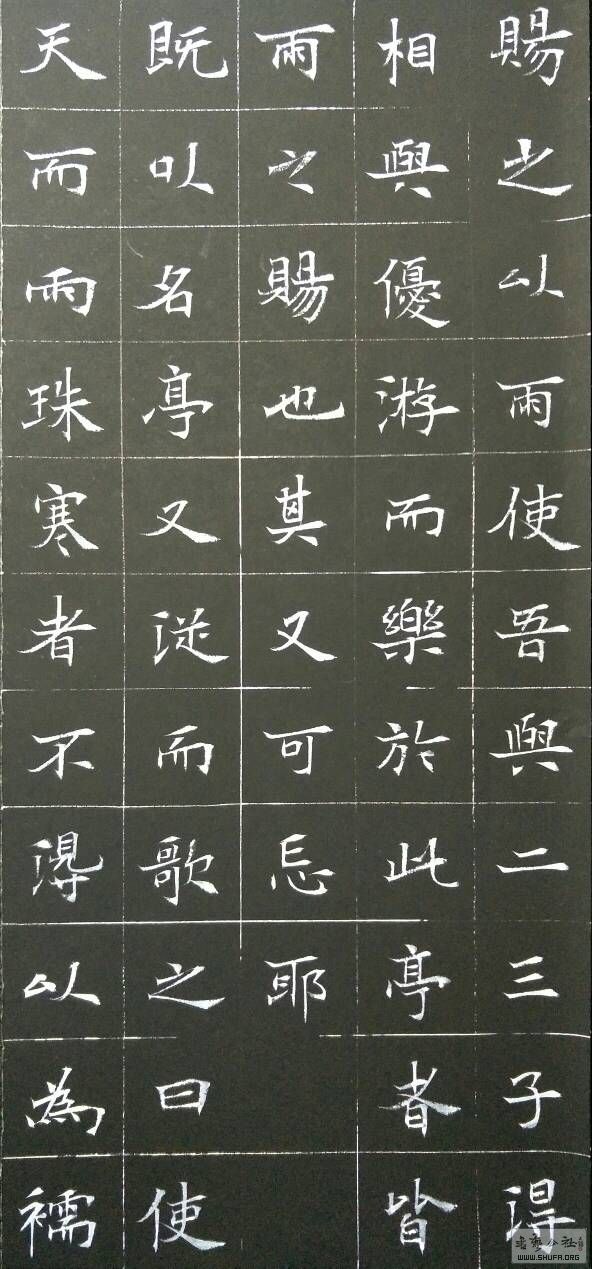 賜之以雨使吾與二三子得
相與優游而樂於此亭者皆
雨之賜也其又可忘耶
既以名亭又從而歌之曰使
天而雨珠寒者不得以為襦
WWW.SHUFA.ORG